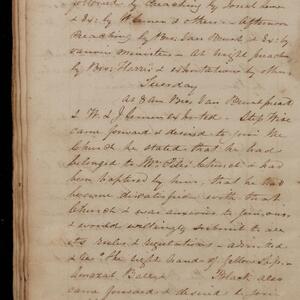 followed by Preaching by Josiah Lemen
& Ex: by J Lemen & others — Afternoon
Preaching by Bro: Van Brunt & Ex: by
various ministers — at night preach
by Bro: Harris & exhortations by others
Tuesday
at 8 am Bro: Van Brunt preach
& W. & J Lemen exhorted — Step Wise
came forward & desired to join the
Church he stated that he had
belonged to Mr. Church & had
been baptized by him, that he had
become dissatisfied with that
Church & was anxious to join us,
& would willingly submit to all
its rules & regulations — admitted
& the right hand of fellowship —
Black also
came forward & desired to join